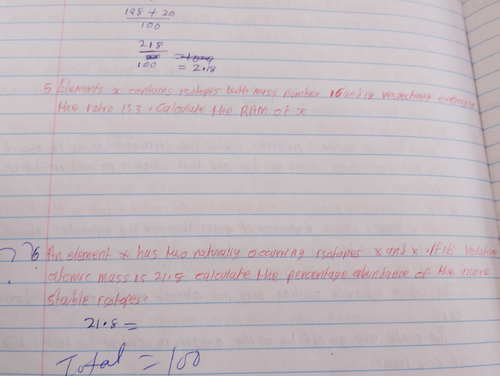 198 + 20
100
218
100 = 2.18
5 Elements x contains isotopes with mass number 16 and 18 respectively
the ratio 1:3. Calculate the RAM of x
6 An element x has two naturally occurring isotopes x and x. If its relative
atomic mass is 21.8 calculate the percentage abundance of the more
stable isotopes
21.8 =
Total = 100